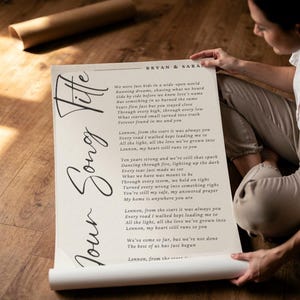 Your Song Title
BRYAN & SARA
We were just kids in a wide-open world
Running dreams, chasing what we heard
Side by side before we knew love's name
But something in us burned the same
Years flew fast but you stayed close
Through every high, through every low
What started small turned into truth
Forever found in me and you
Lennon, from the start it was always you
Every road I walked kept leading me to
All the light, all the love we've grown into
Lennon, my heart still runs to you
Ten years strong and we're still that spark
Dancing through fire, lighting up the dark
Every tear just made us see
What we have was meant to be
Through every storm, we held on tight
Turned every wrong into something right
You're still my safe, my answered prayer
My home is anywhere you are
Lennon, from the start it was always you
Every road I walked kept leading me to
All the light, all the love we've grown into
Lennon, my heart still runs to you
We've come so far, but we're not done
The best of us has just begun
Lennon, from the